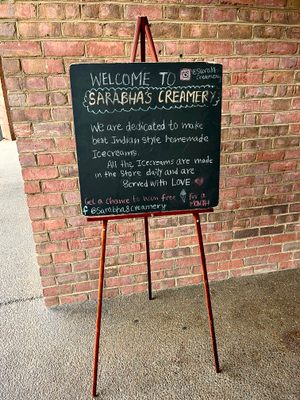 WELCOME TO
@Sarabha
Creamery
SARABHA'S CREAMERY
We are dedicated to make
best Indian style homemade
Icecreams.
All the Icecreams are made
in the Store daily and are
Served with LOVE
Get a chance to win free for a
MONTH
f @Sarabha'sCreamery